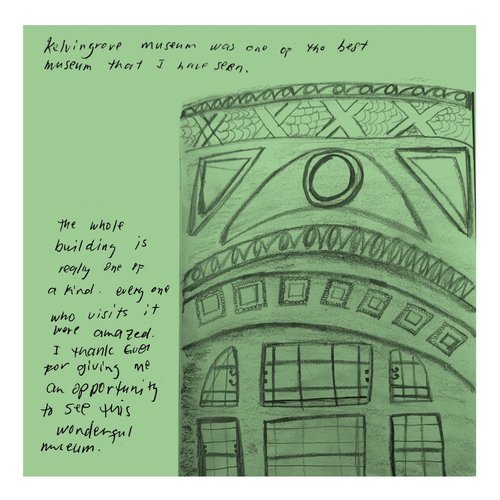 Kelvingrove museum was one of the best
museum that I have seen.
The whole
building is
really one of
a kind. every one
who visits it
were amazed.
I thank
for giving me
an opportunity
to see this
wonderful
museum.